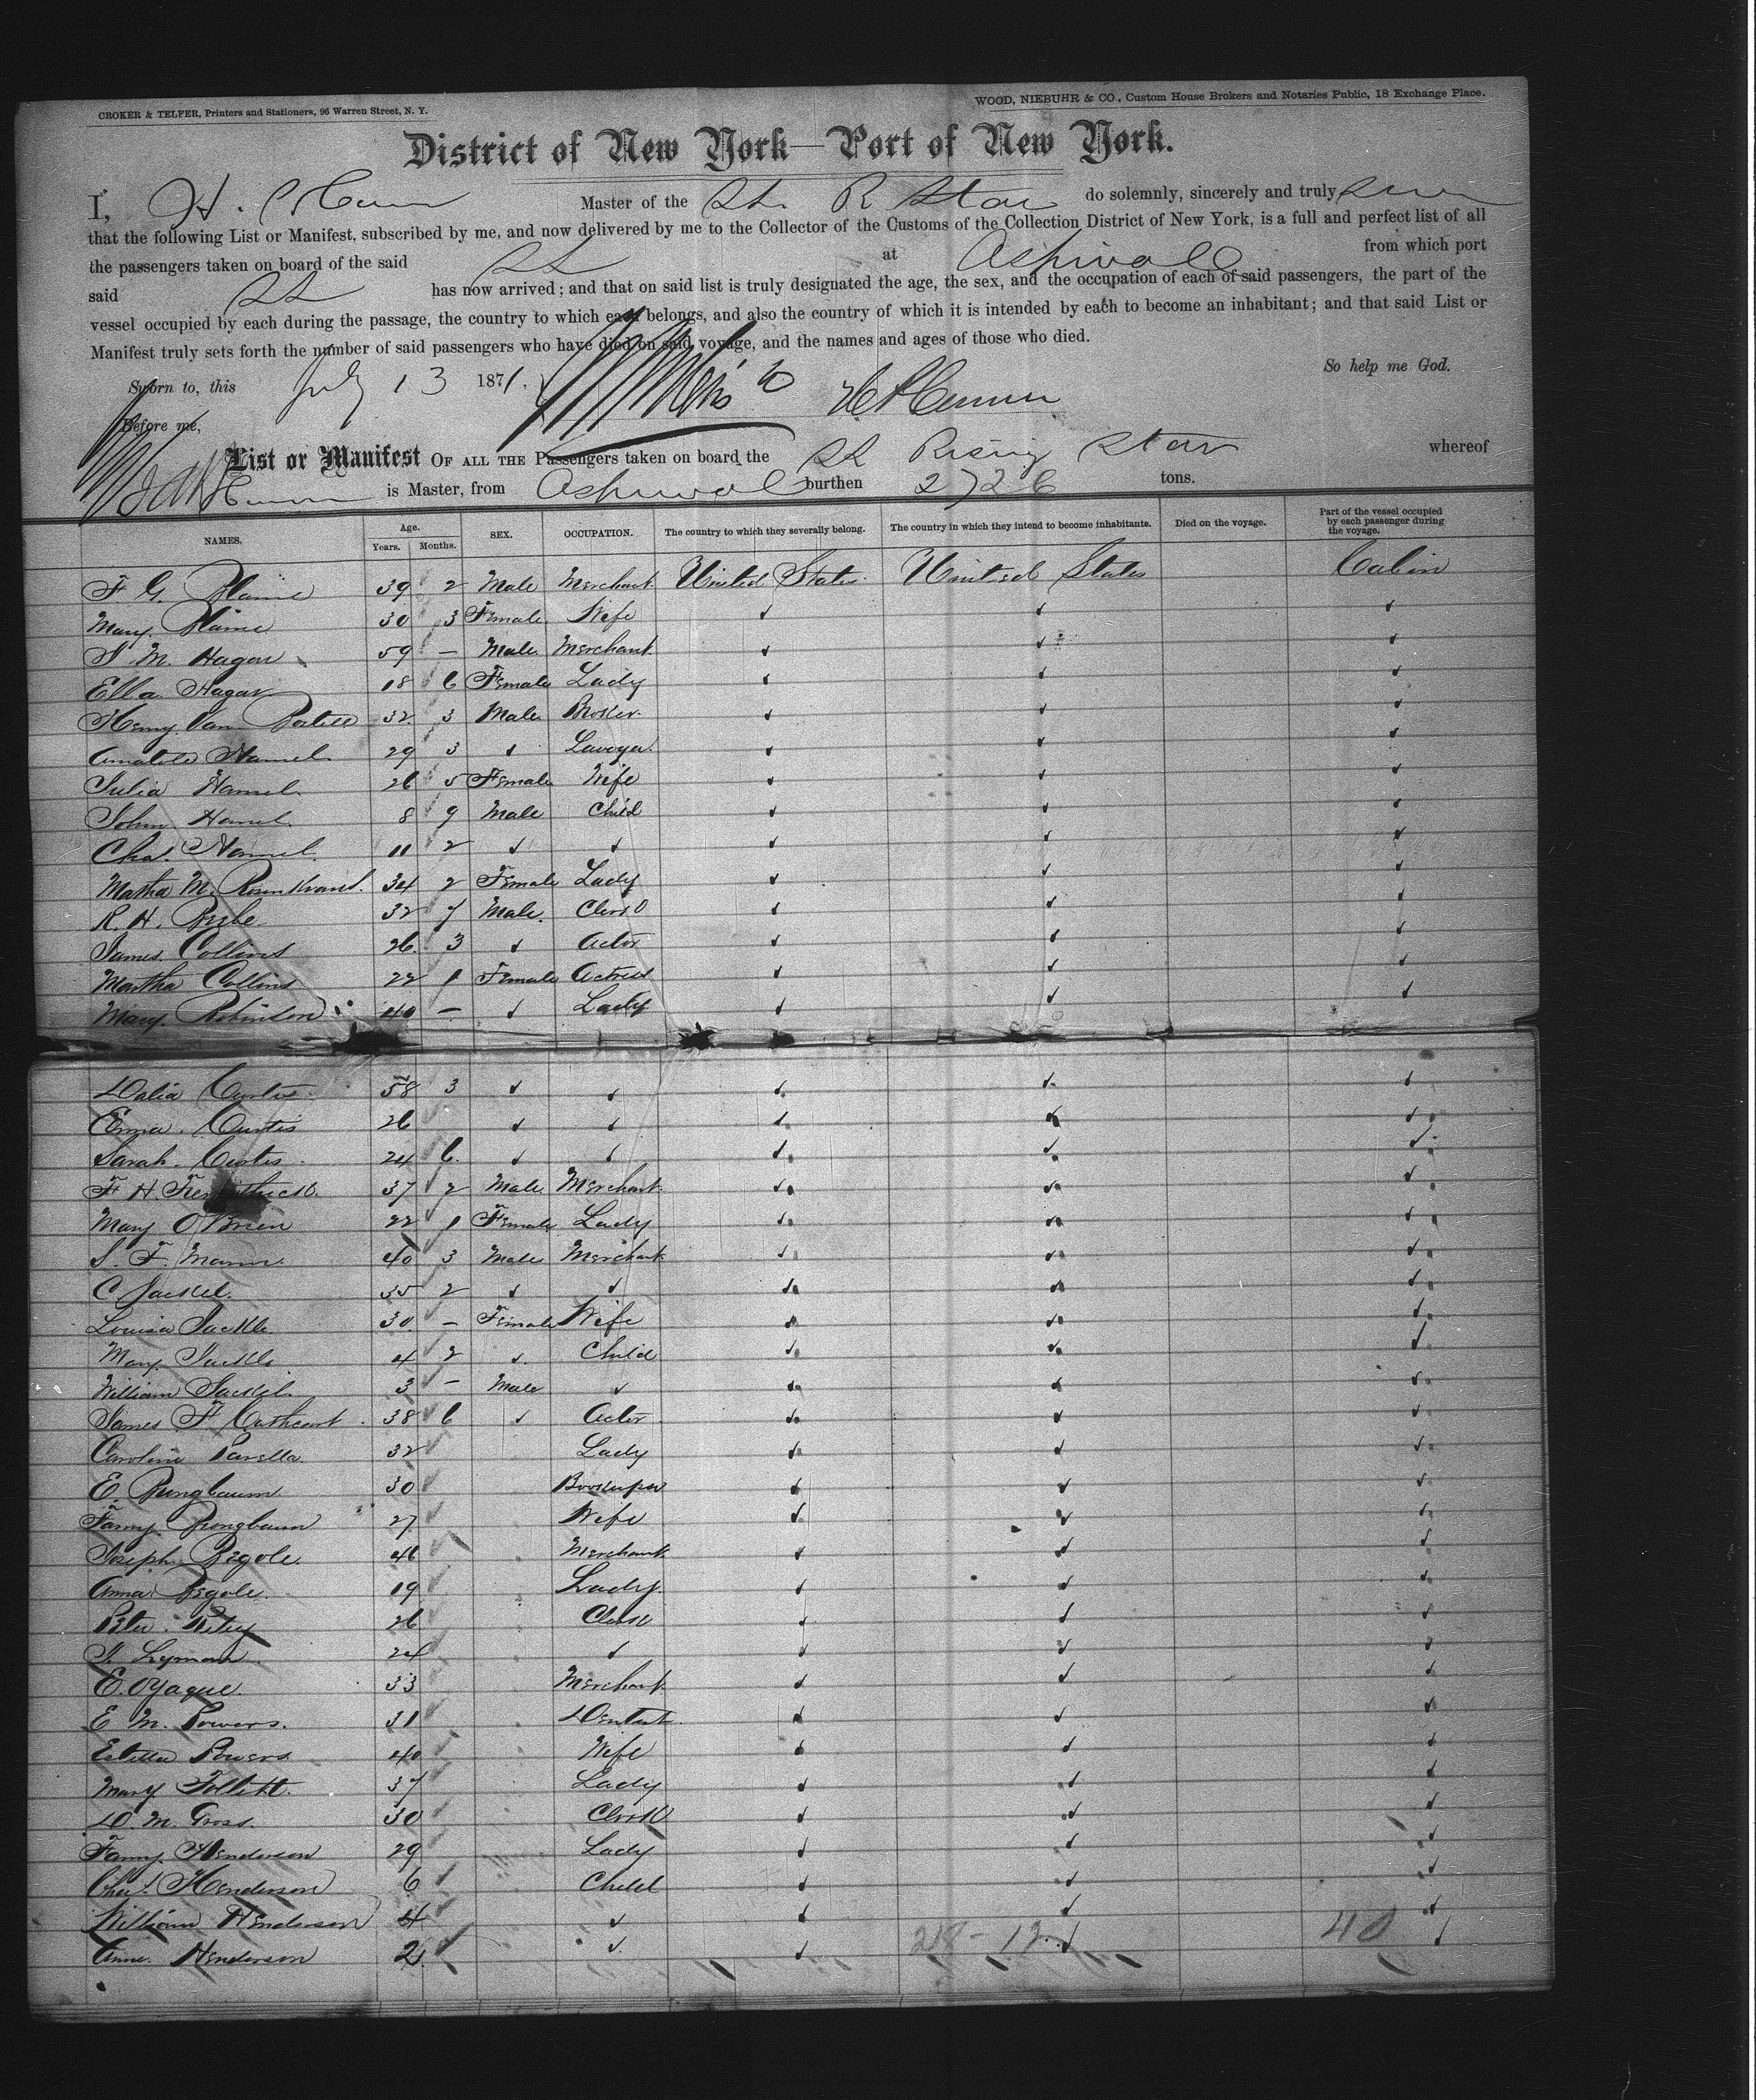 CROKER & TELFER, Printers and Stationers, 96 Warren Street, N. Y.
WOOD, NIEBUHR & CO., Custom House Brokers and Notaries Public, 18 Exchange Place.
District of New York—Port of New York.
I, H. Master of the R Star do solemnly, sincerely and truly
that the following List or Manifest, subscribed by me, and now delivered by me to the Collector of the Customs of the Collection District of New York, is a full and perfect list of all
the passengers taken on board of the said SS at Aspinwall from which port
said SS has now arrived; and that on said list is truly designated the age, the sex, and the occupation of each of said passengers, the part of the
vessel occupied by each during the passage, the country to which each belongs, and also the country of which it is intended by each to become an inhabitant; and that said List or
Manifest truly sets forth the number of said passengers who have died on said voyage, and the names and ages of those who died.
So help me God.
Sworn to, this July 13 1871.
Before me,
List or Manifest OF ALL THE Passengers taken on board the SS Rising Star whereof
is Master, from Aspinwall burthen 2726 tons.
NAMES. Age. Years. Months. SEX. OCCUPATION. The country to which they severally belong. The country in which they intend to become inhabitants. Died on the voyage. Part of the vessel occupied by each passenger during the voyage.
F. G. Blaine 39 2 Male Merchant United States United States Cabin
Mary Blaine 30 3 Female Wife ✓ ✓ ✓
S. M. Hagar 59 — Male Merchant ✓ ✓ ✓
Ella Hagar 18 6 Female Lady ✓ ✓ ✓
Henry Van 32 3 Male Broker ✓ ✓ ✓
Hamel 29 3 ✓ Lawyer ✓ ✓ ✓
Julia Hamel 26 5 Female Wife ✓ ✓ ✓
John Hamel 8 9 Male Child ✓ ✓ ✓
Chas. Hamel 11 2 ✓ ✓ ✓ ✓ ✓
Martha M. 34 2 Female Lady ✓ ✓ ✓
R. H. 32 7 Male Clerk ✓ ✓ ✓
James Collins 26 3 ✓ Actor ✓ ✓ ✓
Martha Collins 22 1 Female Actress ✓ ✓ ✓
Mary Robinson 40 — ✓ Lady ✓ ✓ ✓
Curtis 58 3 ✓ ✓ ✓ ✓ ✓
Emma Curtis 26 ✓ ✓ ✓ ✓ ✓
Sarah Curtis 24 6 ✓ ✓ ✓ ✓ ✓
F. H. 37 2 Male Merchant ✓ ✓ ✓
Mary O'Brien 22 1 Female Lady ✓ ✓ ✓
S. F. Mann 40 3 Male Merchant ✓ ✓ ✓
C 35 2 ✓ ✓ ✓ ✓ ✓
Louisa 30 — Female Wife ✓ ✓ ✓
Mary 4 2 ✓ Child ✓ ✓ ✓
William 3 — Male ✓ ✓ ✓ ✓
James F. Cathcart 38 6 ✓ Actor ✓ ✓ ✓
Caroline 32 Lady ✓ ✓ ✓
E. 30 Bookkeeper ✓ ✓ ✓
Fanny 27 Wife ✓ ✓ ✓
Joseph Begole 46 Merchant ✓ ✓ ✓
Anna Begole 19 Lady ✓ ✓ ✓
Peter Riley 26 Clerk ✓ ✓ ✓
Lyman 24 ✓ ✓ ✓ ✓
E. Oyague 33 Merchant ✓ ✓ ✓
E. M. Powers 31 Dentist ✓ ✓ ✓
Estella Powers 40 Wife ✓ ✓ ✓
Mary Follett 37 Lady ✓ ✓ ✓
D. M. Gross 30 Clerk ✓ ✓ ✓
Fanny Henderson 29 Lady ✓ ✓ ✓
Chas. Henderson 6 Child ✓ ✓ ✓
William Henderson 4 ✓ ✓ ✓ ✓
Anne Henderson 2 ✓ ✓ ✓ ✓
40